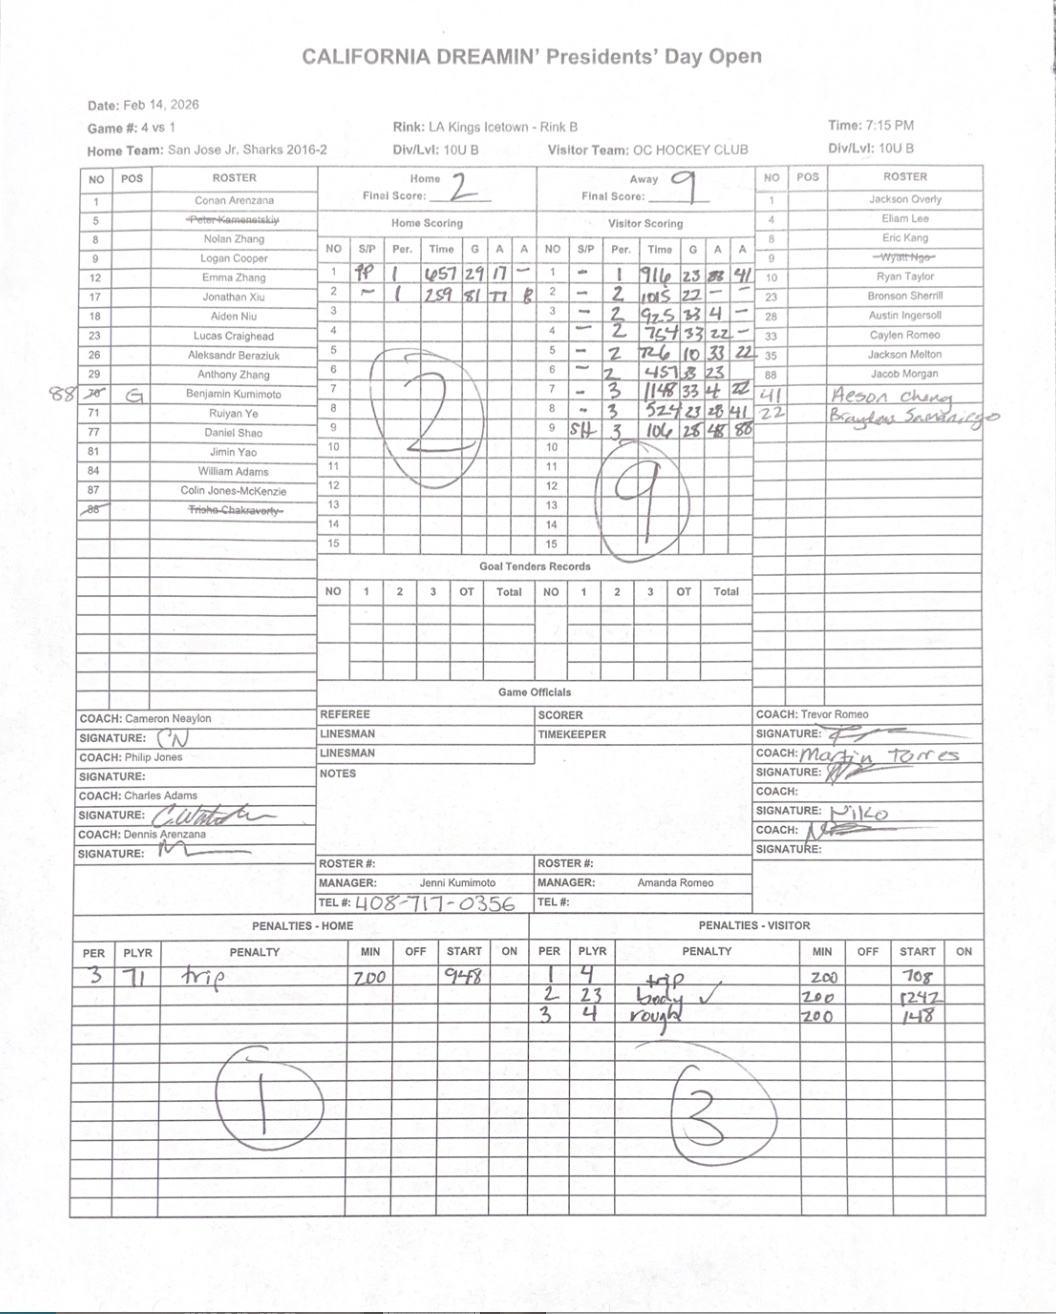 CALIFORNIA DREAMIN' Presidents' Day Open
Date: Feb 14, 2026
Game #: 4 vs 1 Rink: LA Kings Icetown - Rink B Time: 7:15 PM
Home Team: San Jose Jr. Sharks 2016-2 Div/Lvl: 10U B Visitor Team: OC HOCKEY CLUB Div/Lvl: 10U B
NO POS ROSTER
1 Conan Arenzana
5 Peter Kamenetskiy
8 Nolan Zhang
9 Logan Cooper
12 Emma Zhang
17 Jonathan Xiu
18 Aiden Niu
23 Lucas Craighead
26 Aleksandr Beraziuk
29 Anthony Zhang
88 G Benjamin Kumimoto
71 Ruiyan Ye
77 Daniel Shao
81 Jimin Yao
84 William Adams
87 Colin Jones-McKenzie
88 Trisha Chakravorty
Home Final Score: 2
Home Scoring
NO S/P Per. Time G A A
1 PP 1 657 29 17 -
2 - 1 259 81 77
3
4
5
6
7
8
9
10
11
12
13
14
15
2
Away Final Score: 9
Visitor Scoring
NO S/P Per. Time G A A
1 - 1 916 23 41
2 - 2 1015 22 - -
3 - 2 925 33 4 -
4 - 2 754 33 22 -
5 - 2 726 10 33 22
6 - 2 457 23
7 - 3 1148 33 4 22
8 - 3 524 23 28 41
9 SH 3 106 28 88
10
11
12
13
14
15
9
NO POS ROSTER
1 Jackson Overly
4 Eliam Lee
8 Eric Kang
9 Wyatt Ngo
10 Ryan Taylor
23 Bronson Sherrill
28 Austin Ingersoll
33 Caylen Romeo
35 Jackson Melton
88 Jacob Morgan
41 Aeson Cheng
22 Brayden Samaniego
Goal Tenders Records
NO 1 2 3 OT Total NO 1 2 3 OT Total
Game Officials
REFEREE SCORER
LINESMAN TIMEKEEPER
LINESMAN
NOTES
COACH: Cameron Neaylon
SIGNATURE: CN
COACH: Philip Jones
SIGNATURE:
COACH: Charles Adams
SIGNATURE:
COACH: Dennis Arenzana
SIGNATURE:
COACH: Trevor Romeo
SIGNATURE:
COACH: Martin Torres
SIGNATURE:
COACH:
SIGNATURE: Niko
COACH:
SIGNATURE:
ROSTER #: ROSTER #:
MANAGER: Jenni Kumimoto MANAGER: Amanda Romeo
TEL #: 408-717-0356 TEL #:
PENALTIES - HOME
PER PLYR PENALTY MIN OFF START ON
3 71 trip 200 948
1
PENALTIES - VISITOR
PER PLYR PENALTY MIN OFF START ON
1 4 trip 200 708
2 23 body ✓ 200 1242
3 4 rough 200 148
3